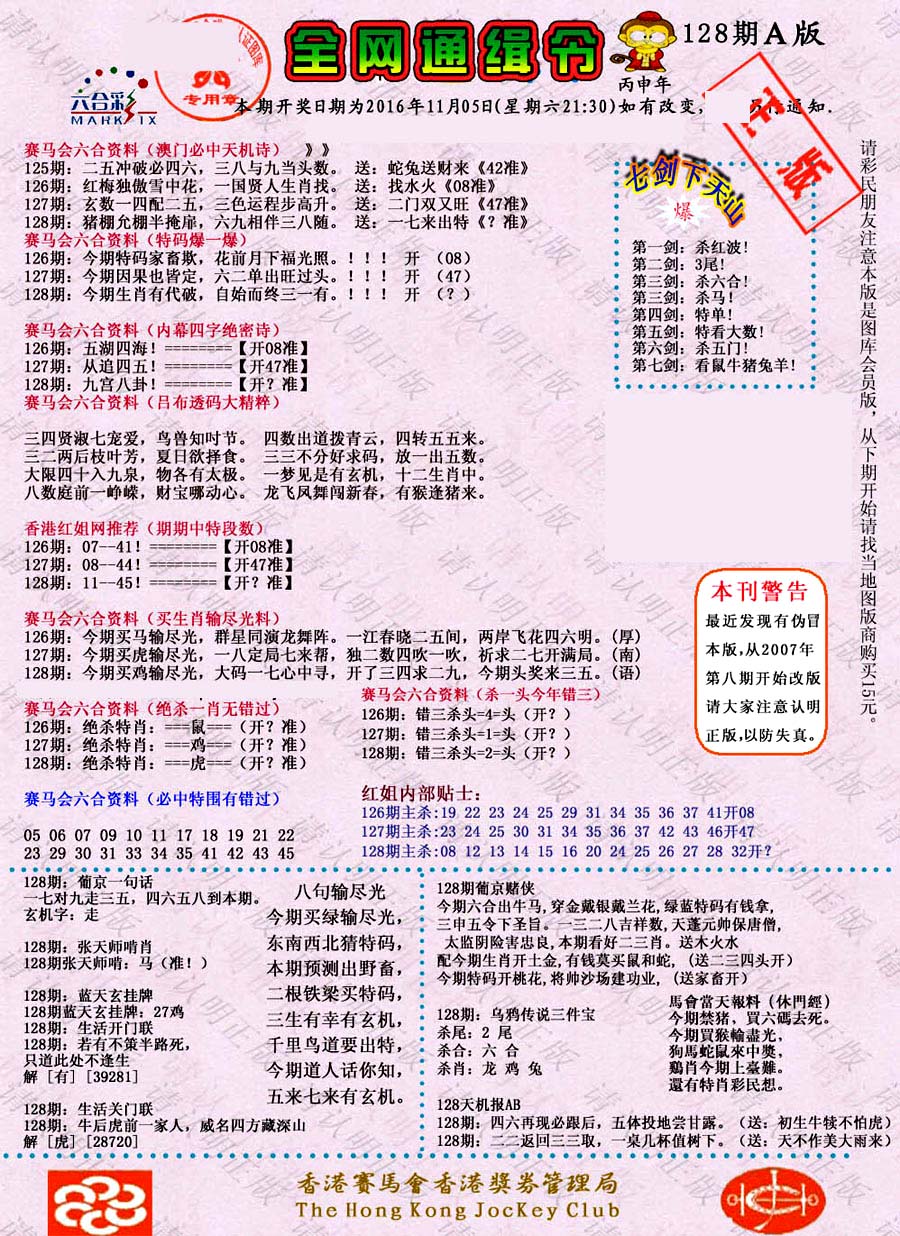 全网通缉令
128期A版
丙申年
六合彩
MARK SIX
证图库
专用章
本期开奖日期为2016年11月05日(星期六21:30)如有改变,
通知.
正版
赛马会六合资料（澳门必中天机诗） 》》
125期：二五冲破必四六，三八与九当头数。 送：蛇兔送财来《42准》
126期：红梅独傲雪中花，一国贤人生肖找。 送：找水火《08准》
127期：玄数一四配二五，三色运程步高升。 送：二门双又旺《47准》
128期：猪棚允棚半掩扉，六九相伴三八随。 送：一七来出特《？准》
赛马会六合资料（特码爆一爆）
126期：今期特码家畜欺，花前月下福光照。！！！ 开 （08）
127期：今期因果也皆定，六二单出旺过头。！！！ 开 （47）
128期：今期生肖有代破，自始而终三一有。！！！ 开 （？）
赛马会六合资料（内幕四字绝密诗）
126期：五湖四海！========【开08准】
127期：从追四五！========【开47准】
128期：九宫八卦！========【开？准】
赛马会六合资料（吕布透码大精粹）
三四贤淑七宠爱，鸟兽知时节。 四数出道拨青云，四转五五来。
三二两后枝叶芳，夏日欲择食。 三三不分好求码，放一出五数。
大限四十入九泉，物各有太极。 一梦见是有玄机，十二生肖中。
八数庭前一峥嵘，财宝哪动心。 龙飞凤舞闯新春，有猴逢猪来。
香港红姐网推荐（期期中特段数）
126期：07--41！========【开08准】
127期：08--44！========【开47准】
128期：11--45！========【开？准】
赛马会六合资料（买生肖输尽光料）
126期：今期买马输尽光，群星同演龙舞阵。一江春晓二五间，两岸飞花四六明。(厚)
127期：今期买虎输尽光，一八定局七来帮，独二数四吹一吹，祈求二七开满局。(南)
128期：今期买鸡输尽光，大码一七心中寻，开了三四求二九，今期头奖来三五。(语)
赛马会六合资料（绝杀一肖无错过）
126期：绝杀特肖：===鼠===（开？准）
127期：绝杀特肖：===鸡===（开？准）
128期：绝杀特肖：===虎===（开？准）
赛马会六合资料（杀一头今年错三）
126期：错三杀头=4=头（开？）
127期：错三杀头=1=头（开？）
128期：错三杀头=2=头（开？）
赛马会六合资料（必中特围有错过）
05 06 07 09 10 11 17 18 19 21 22
23 29 30 31 33 34 35 41 42 43 45
红姐内部贴士：
126期主杀:19 22 23 24 25 29 31 34 35 36 37 41开08
127期主杀:23 24 25 30 31 34 35 36 37 42 43 46开47
128期主杀:08 12 13 14 15 16 20 24 25 26 27 28 32开？
七剑下天山
爆
第一剑：杀红波！
第二剑：3尾！
第三剑：杀六合！
第三剑：杀马！
第四剑：特单！
第五剑：特看大数！
第六剑：杀五门！
第七剑：看鼠牛猪兔羊！
请彩民朋友注意本版是图库会员版，从下期开始请找当地图版商购买15元。
本刊警告
最近发现有伪冒
本版,从2007年
第八期开始改版
请大家注意认明
正版,以防失真。
128期：葡京一句话
一七对九走三五，四六五八到本期。
玄机字：走
128期：张天师啃肖
128期张天师啃：马（准！）
128期：蓝天玄挂牌
128期蓝天玄挂牌：27鸡
128期：生活开门联
128期：若有不策半路死，
只道此处不逢生
解 [有] [39281]
128期：生活关门联
128期：牛后虎前一家人，威名四方藏深山
解 [虎] [28720]
八句输尽光
今期买绿输尽光，
东南西北猜特码，
本期预测出野畜，
二根铁梁买特码，
三生有幸有玄机，
千里鸟道要出特，
今期道人话你知，
五来七来有玄机。
128期葡京赌侠
今期六合出牛马,穿金戴银戴兰花,绿蓝特码有钱拿,
三申五令下圣旨。一三二八吉祥数,天蓬元帅保唐僧,
太监阴险害忠良,本期看好二三肖。送木火水
配今期生肖开土金,有钱莫买鼠和蛇,（送二三四头开）
今期特码开桃花,将帅沙场建功业,（送家畜开）
128期：乌鸦传说三件宝
杀尾：2 尾
杀合：六 合
杀肖：龙 鸡 兔
馬會當天報料（休門經）
今期禁猪、買六碼去死。
今期買猴輸盡光，
狗馬蛇鼠來中獎，
鷄肖今期上臺難。
還有特肖彩民想。
128天机报AB
128期：四六再现必跟后，五体投地尝甘露。（送：初生牛犊不怕虎）
128期：二二返回三三取，一桌几杯值树下。（送：天不作美大雨来）
香港賽馬會香港獎券管理局
The Hong Kong JocKey Club
请认明正版